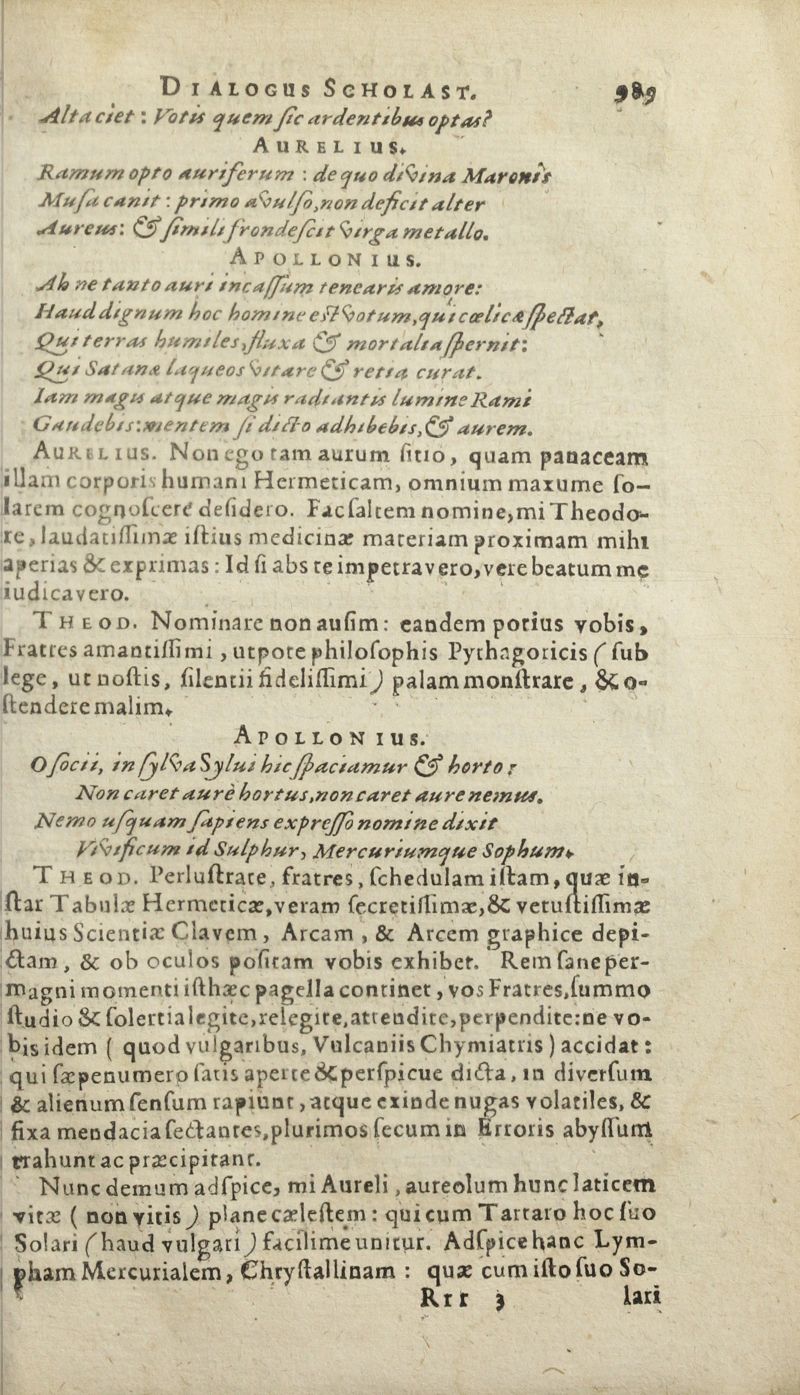 DIALOGUS SCHOLAST. 989
Alta ciet: Votis quem ſic ardentibus optas?
AURELIUS.
Ramum opto auriferum: de quo divina Maronis
Muſa canit: primo avulſo, non deficit alter
Aureus: & ſimili frondeſcit virga metallo.
APOLLONIUS.
Ah ne tanto auri incaſſum tenearis amore:
Haud dignum hoc homine eſt votum, qui cœlica ſpectat,
Qui terras humiles, fluxa & mortalia ſpernit:
Qui Satanæ laqueos vitare & retia curat.
Iam magis atque magis radiantis lumine Rami
Gaudebis: mentem ſi dicto adhibebis, & aurem.
AURELIUS. Non ego tam aurum ſitio, quam panaceam
illam corporis humani Hermeticam, omnium maxume ſo-
larem cognoſcere deſidero. Fac ſaltem nomine, mi Theodo-
re, laudatiſſimæ iſtius medicinæ materiam proximam mihi
aperias & exprimas: Id ſi abs te impetravero, vere beatum me
iudicavero.
THEOD. Nominare non auſim: eandem potius vobis,
Fratres amantiſſimi, utpote philoſophis Pythagoricis (ſub
lege, ut noſtis, ſilentii fideliſſimi) palam monſtrare, & o-
ſtendere malim.
APOLLONIUS.
O ſocii, in ſylva Sylui hic ſpaciamur & horto:
Non caret aurè hortus, non caret aure nemus.
Nemo uſquam ſapiens expreſſo nomine dixit
Vivificum id Sulphur, Mercuriumque Sophum.
THEOD. Perluſtrate, fratres, ſchedulam iſtam, quæ in-
ſtar Tabulæ Hermeticæ, veram ſecretiſſimæ, & vetuſtiſſimæ
huius Scientiæ Clavem, Arcam, & Arcem graphice depi-
ctam, & ob oculos poſitam vobis exhibet. Rem ſane per-
magni momenti iſthæc pagella continet, vos Fratres, ſummo
ſtudio & ſolertia legite, relegite, attendite, perpendite: ne vo-
bis idem (quod vulgaribus, Vulcaniis Chymiatris) accidat:
qui ſæpenumero ſatis aperte & perſpicue dicta, in diverſum
& alienum ſenſum rapiunt, atque exinde nugas volatiles, &
fixa mendacia ſectantes, plurimos ſecum in Erroris abyſſum
trahunt ac præcipitant.
Nunc demum adſpice, mi Aureli, aureolum hunc laticem
vitæ (non vitis) plane cæleſtem: qui cum Tartaro hoc ſuo
Solari (haud vulgari) facilime unitur. Adſpice hanc Lym-
pham Mercurialem, Chryſtallinam: quæ cum iſto ſuo So-
Rrr 3 lari